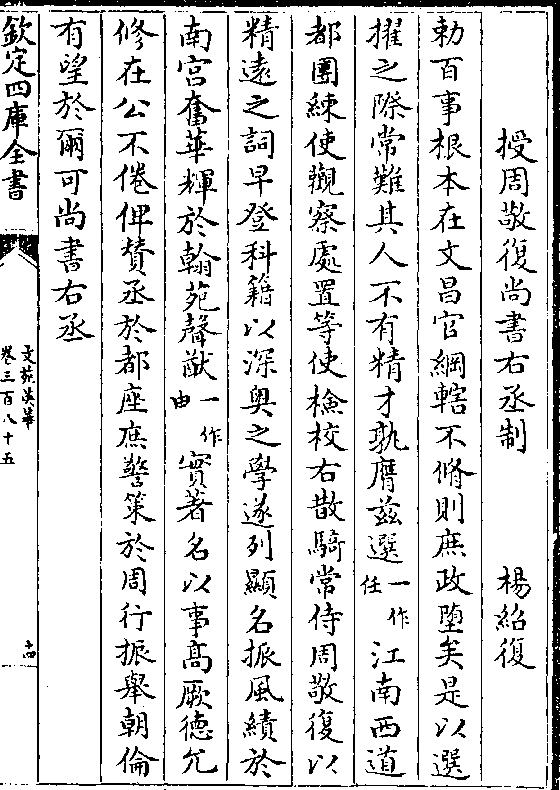 授周敬復尚書右丞制　楊紹復
勅百事根本在文昌官綱轄不脩則庶政墮矣是以選
擢之際常難其人不有精才孰膺兹選一作任江南西道
都團練使觀察處置等使檢校右散騎常侍周敬復以
精遠之詞早登科籍以深奥之學遂列顯名振風績於
南宮奮華輝於翰苑聲猷一作由實著名以事髙厥德允
修在公不倦俾賛丞於都座庶警策於周行振舉朝倫
有望於爾可尚書右丞
欽定四庫全書
文苑英華
卷三百八十五
十四